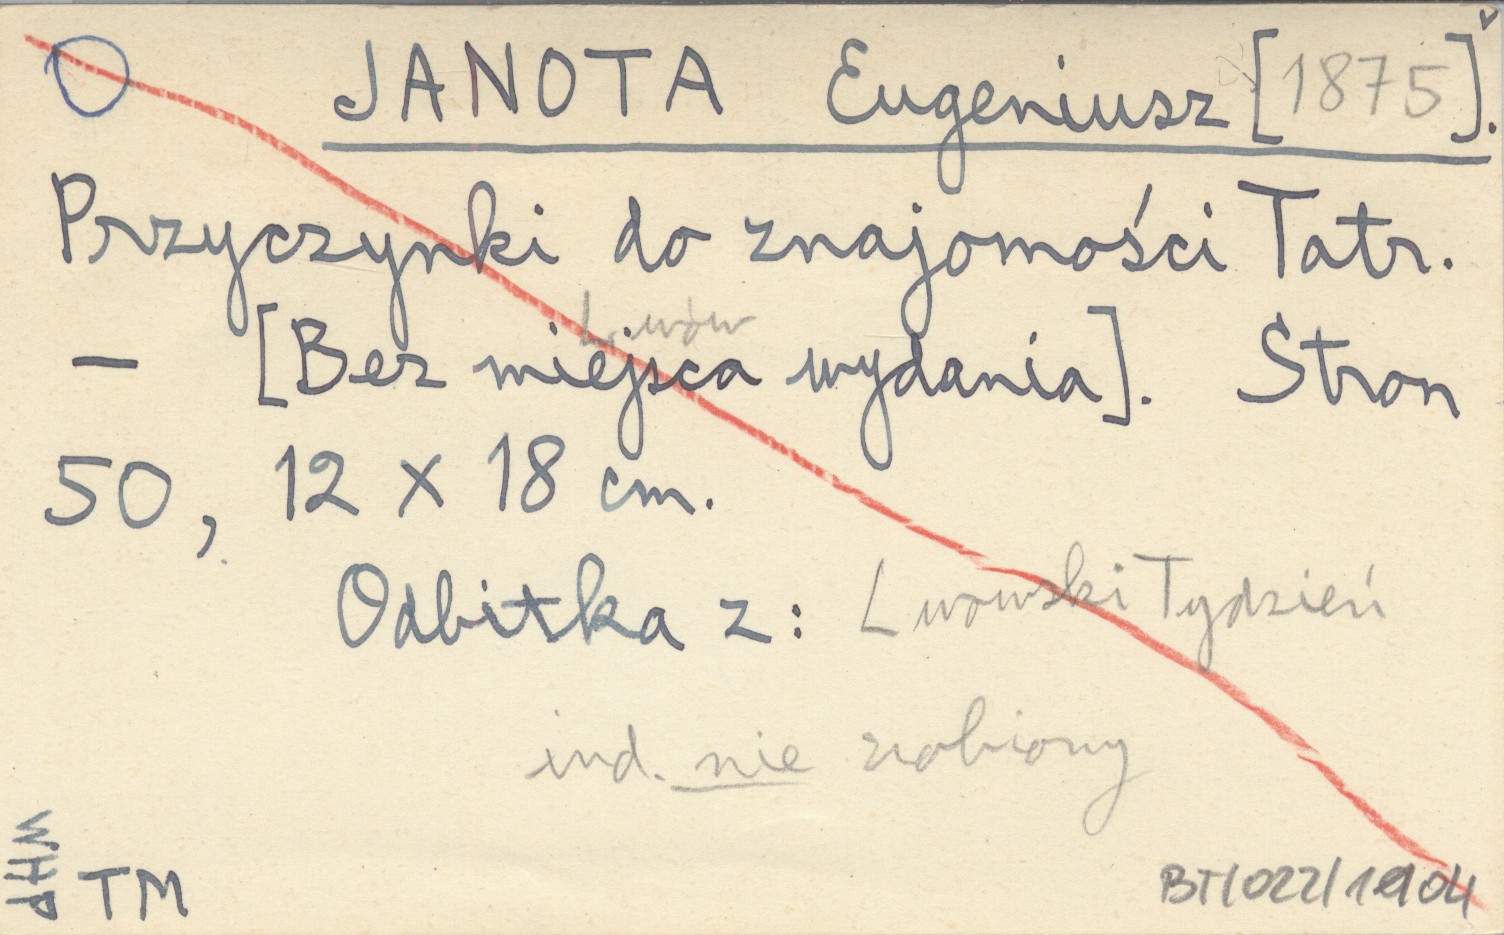 JANOTA Eugeniusz [1875].
Przyczynki do znajomości Tatr.
Lwów
— [Bez miejsca wydania]. Stron
50, 12 x 18 cm.
Odbitka z: Lwowski Tydzień
ind. nie zrobiony
WHP
TM
BT/022/1904